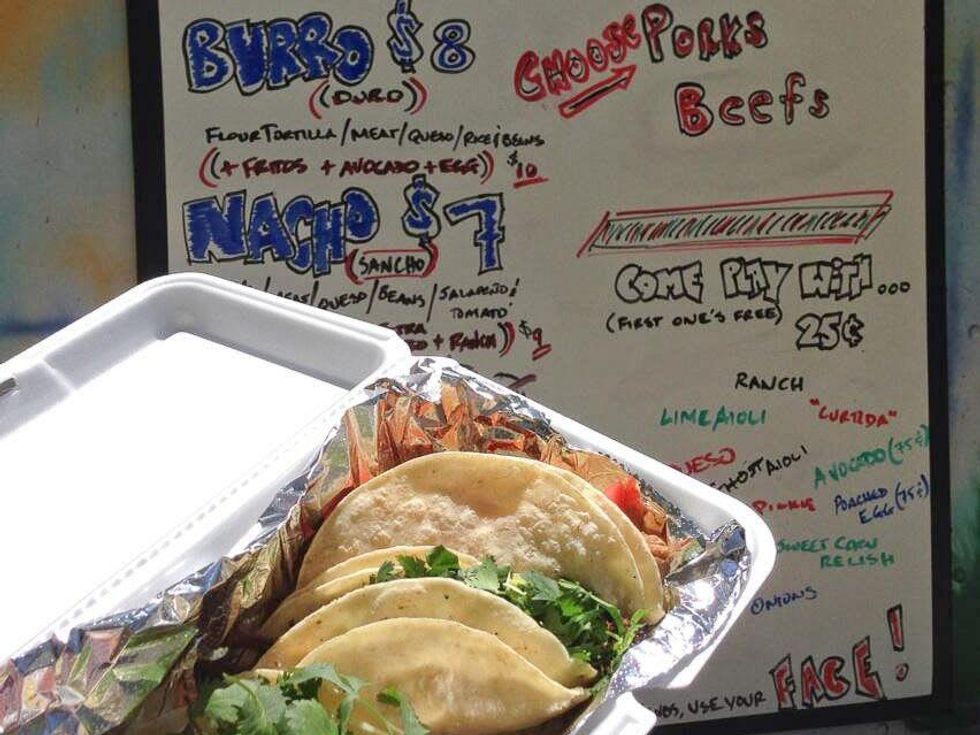 BURRO $8
(DURO)
FLOUR TORTILLA/MEAT/QUESO/RICE & BEANS
(+ FRITOS + AVOCADO + EGG) $10
NACHO $7
(SANCHO)
/QUESO/BEANS/JALAPEÑO!
TOMATO!
+ RANCH) $9
CHOOSE PORKS
BeeFs
COME PLAY WITH...
(FIRST ONE'S FREE) 25¢
RANCH
LIME AIOLI "CURTIDA"
AVOCADO (75¢)
PICKLE POACHED EGG (75¢)
SWEET CORN
RELISH
ONIONS
, USE YOUR FACE!